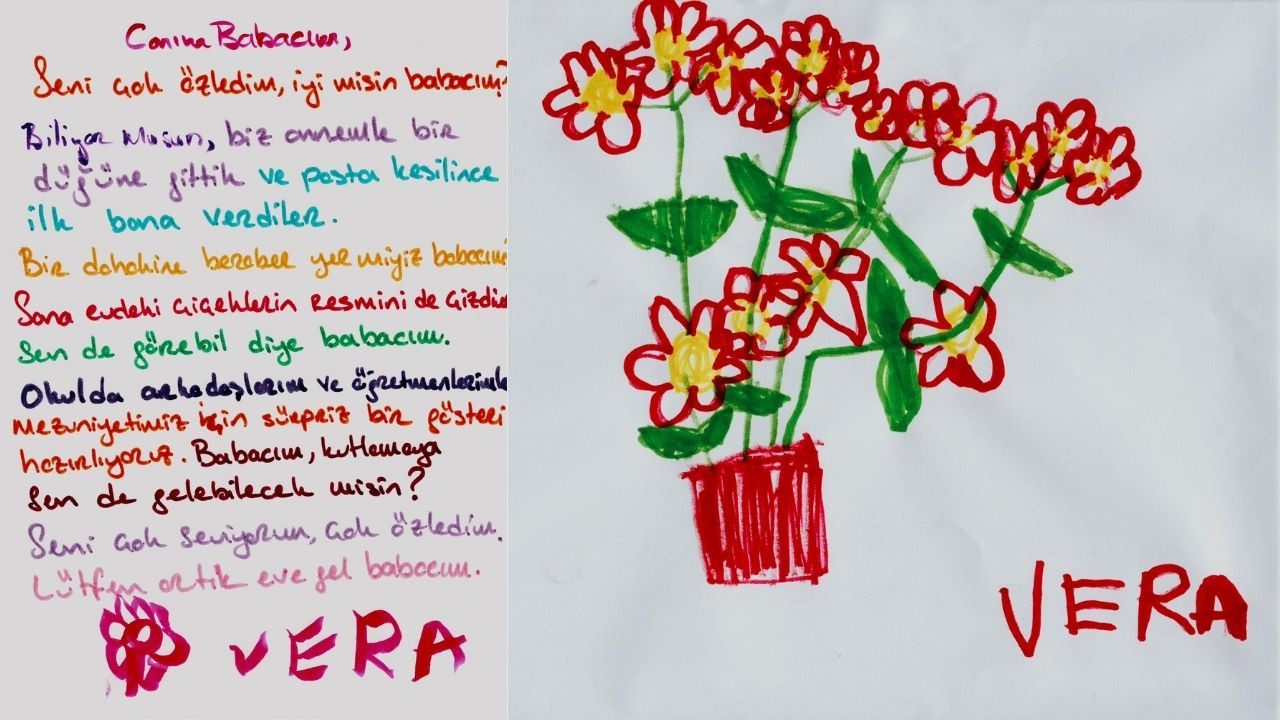 Canım Babacım,
Seni çok özledim, iyi misin babacım?
Biliyor musun, biz annemle bir
düğüne gittik ve pasta kesilince
ilk bana verdiler.
Bir dahakine beraber yer miyiz babacım?
Sana evdeki çiçeklerin resmini de çizdim
Sen de görebil diye babacım.
Okulda arkadaşlarım ve öğretmenlerimle
mezuniyetimiz için sürpriz bir gösteri
hazırlıyoruz. Babacım, kutlamaya
sen de gelebilecek misin?
Seni çok seviyorum, çok özledim.
Lütfen artık eve gel babacım.
VERA
VERA